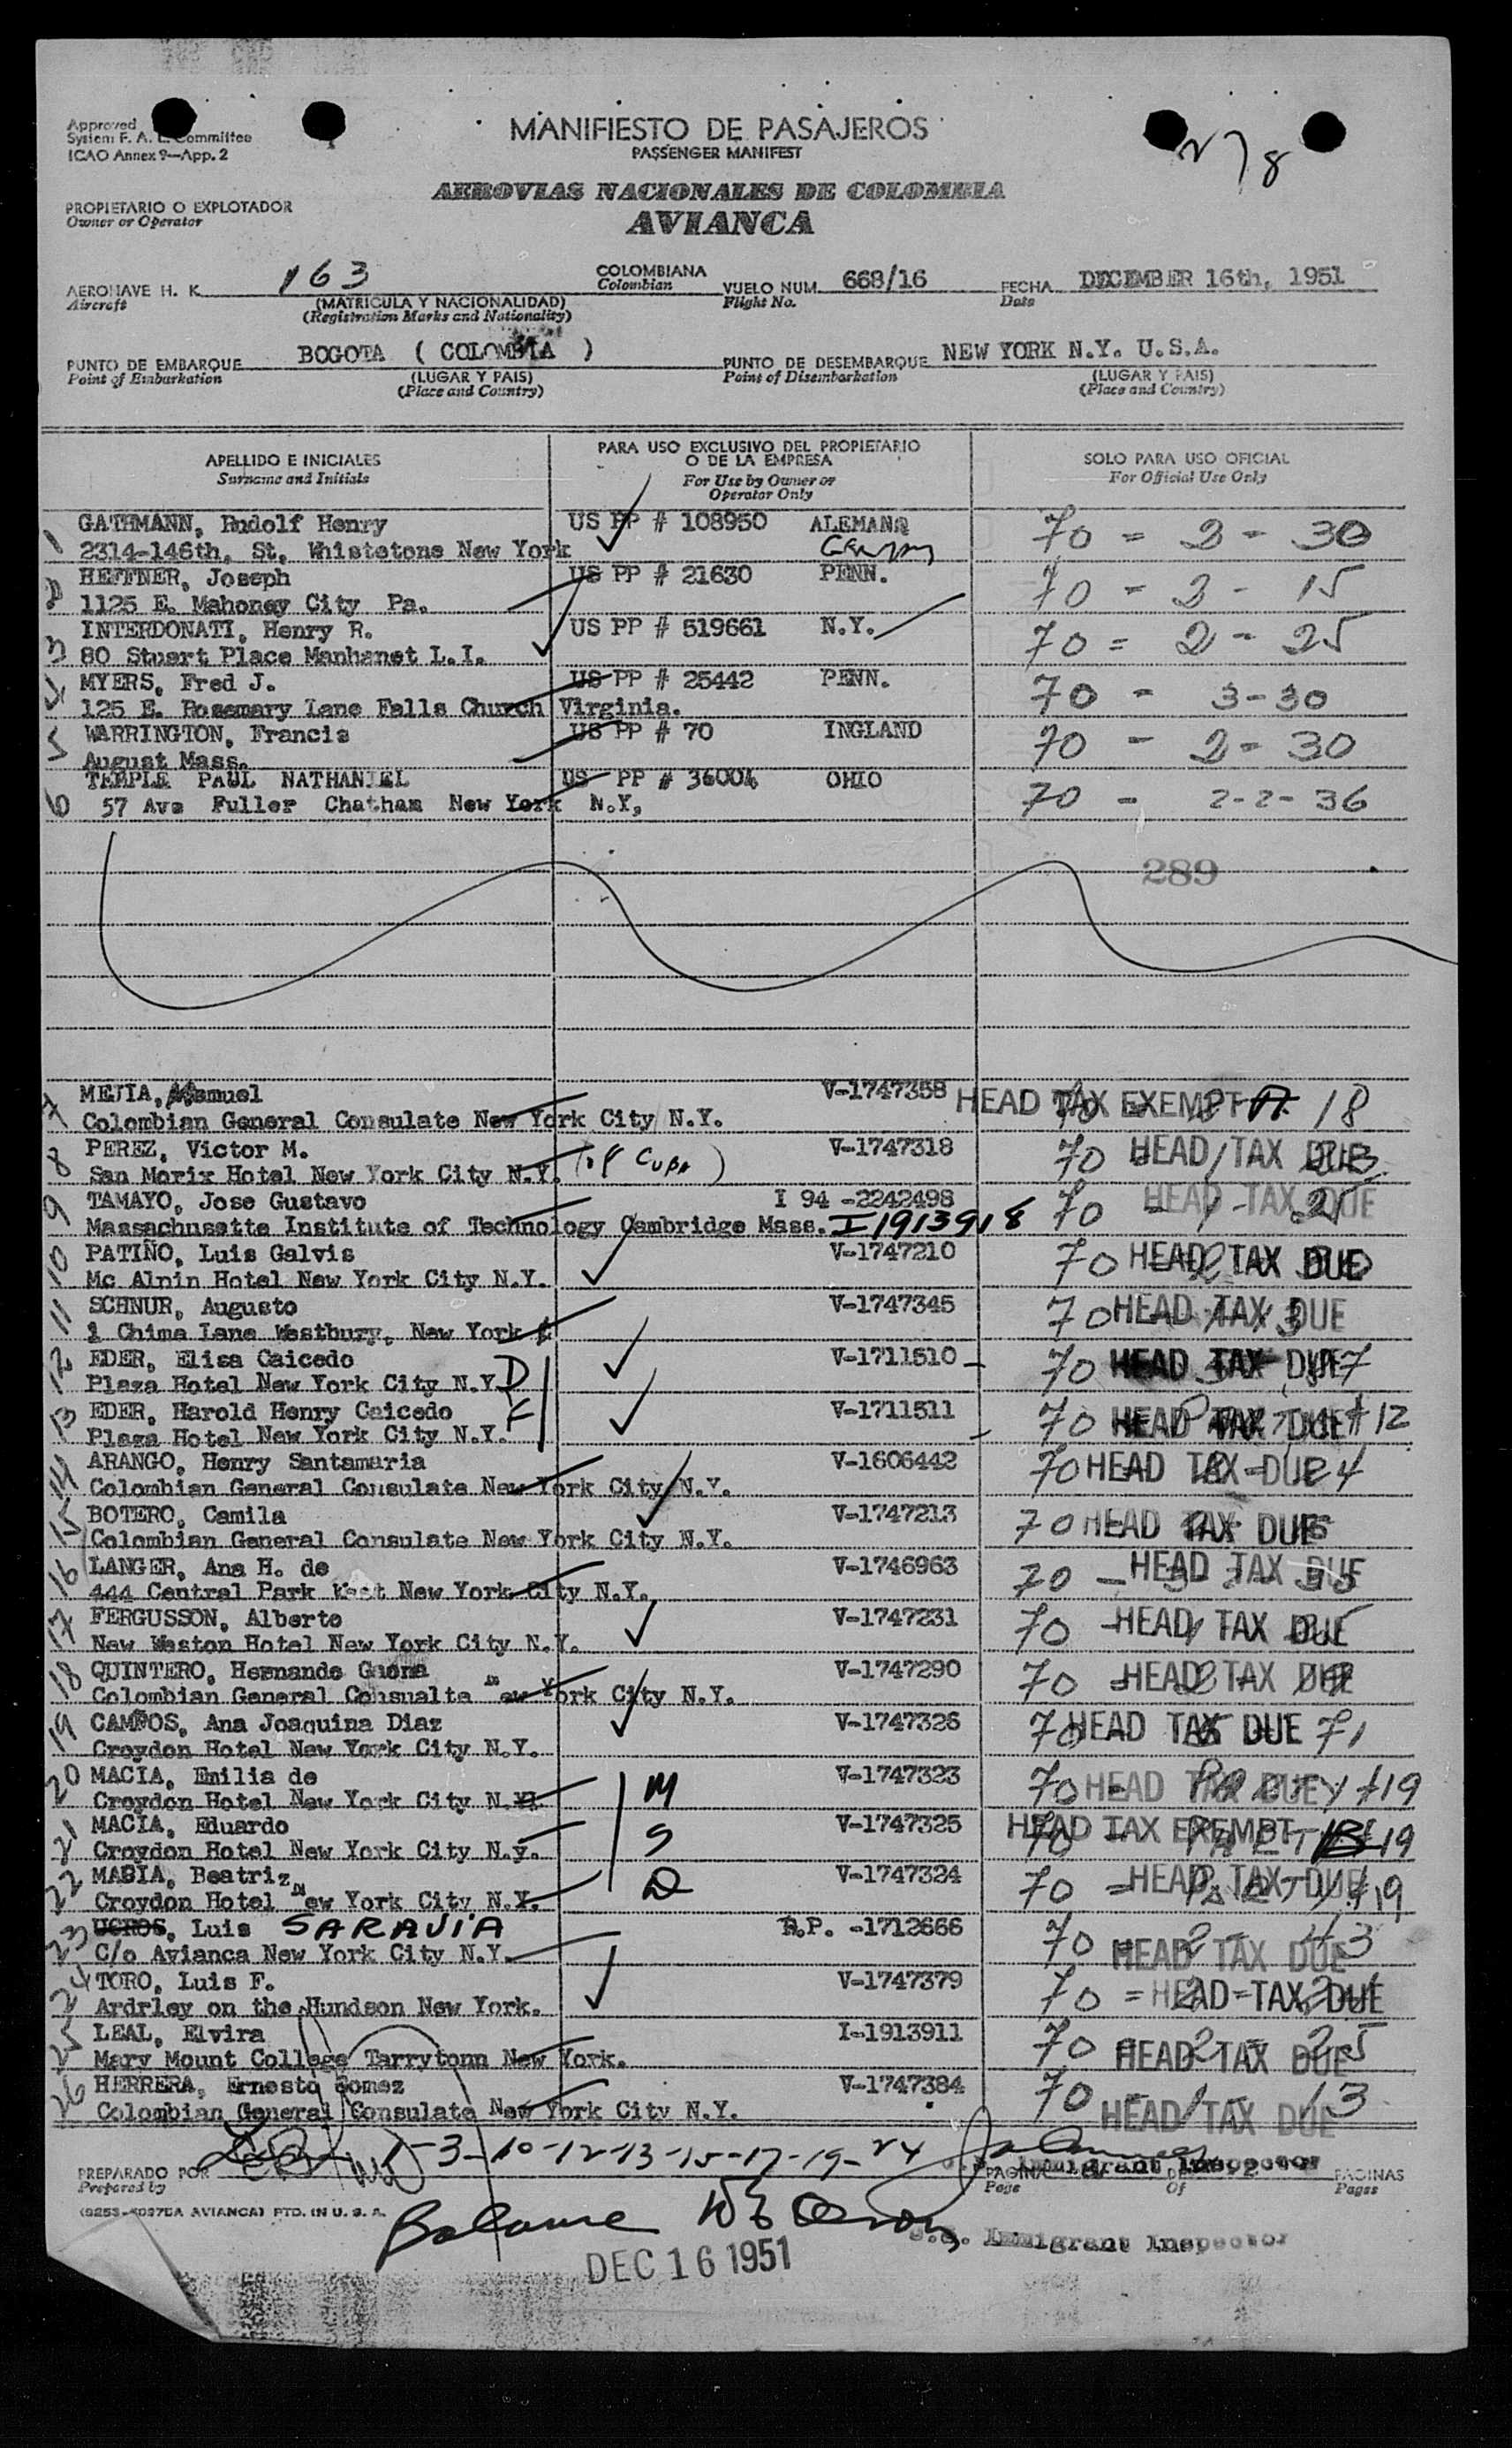 Approved
System F. A. L. Committee
ICAO Annex 9—App. 2
MANIFIESTO DE PASAJEROS
PASSENGER MANIFEST
AEROVIAS NACIONALES DE COLOMBIA
AVIANCA
PROPIETARIO O EXPLOTADOR
Owner or Operator
AERONAVE H. K. 163 COLOMBIANA VUELO NUM. 668/16 FECHA DECEMBER 16th, 1951
Aircraft (MATRICULA Y NACIONALIDAD) Colombian Flight No. Date
(Registration Marks and Nationality)
PUNTO DE EMBARQUE BOGOTA ( COLOMBIA ) PUNTO DE DESEMBARQUE NEW YORK N.Y. U.S.A.
Point of Embarkation (LUGAR Y PAIS) Point of Disembarkation (LUGAR Y PAIS)
(Place and Country) (Place and Country)
APELLIDO E INICIALES PARA USO EXCLUSIVO DEL PROPIETARIO O DE LA EMPRESA SOLO PARA USO OFICIAL
Surname and Initials For Use by Owner or Operator Only For Official Use Only
1 GATHMANN, Rudolf Henry US PP # 108950 ALEMANA 70 = 2 - 30
2314-146th, St, Whistetone New York
2 HEFFNER, Joseph US PP # 21630 PENN. 70 - 2 - 15
1125 E. Mahoney City Pa.
3 INTERDONATI, Henry R. US PP # 519661 N.Y. 70 = 2 - 25
80 Stuart Place Manhanet L.I.
4 MYERS, Fred J. US PP # 25442 PENN. 70 - 3-30
125 E. Rosemary Lane Falls Church Virginia.
5 WARRINGTON, Francis US PP # 70 INGLAND 70 - 2 - 30
August Mass.
6 TEMPLE PAUL NATHANIEL US PP # 36004 OHIO 70 - 2-2-36
57 Ave Fuller Chatham New York N.Y,
289
7 MEJIA, Manuel V-1747358 HEAD TAX EXEMPT 18
Colombian General Consulate New York City N.Y.
8 PEREZ, Victor M. V-1747318 70 HEAD TAX DUE
San Morix Hotel New York City N.Y. (of CUBA)
9 TAMAYO, Jose Gustavo I 94 -2242498 70 HEAD TAX DUE
Massachusette Institute of Technology Cambridge Mass. I1913918
10 PATIÑO, Luis Galvis V-1747210 70 HEAD TAX DUE
Mc Alpin Hotel New York City N.Y.
11 SCHNUR, Augusto V-1747345 70 HEAD TAX DUE
1 Chima Lane Westbury, New York
12 EDER, Elisa Caicedo V-1711510 70 HEAD TAX DUE
Plaza Hotel New York City N.Y. D
13 EDER, Harold Henry Caicedo V-1711511 70 HEAD TAX DUE #12
Plaza Hotel New York City N.Y.
14 ARANGO, Henry Santamaria V-1606442 70 HEAD TAX DUE
Colombian General Consulate New York City N.Y.
15 BOTERO, Camila V-1747213 70 HEAD TAX DUE
Colombian General Consulate New York City N.Y.
16 LANGER, Ana H. de V-1746963 70 HEAD TAX DUE
444 Central Park West New York City N.Y.
17 FERGUSSON, Alberto V-1747231 70 HEAD TAX DUE
New Weston Hotel New York City N.Y.
18 QUINTERO, Hernando Gaona V-1747290 70 HEAD TAX DUE
Colombian General Consualte New York City N.Y.
19 CAMPOS, Ana Joaquina Diaz V-1747326 70 HEAD TAX DUE 71
Croydon Hotel New York City N.Y.
20 MACIA, Emilia de M V-1747323 70 HEAD TAX DUE #19
Croydon Hotel New York City N.Y.
21 MACIA, Eduardo S V-1747325 HEAD TAX EXEMPT 19
Croydon Hotel New York City N.y.
22 MABIA, Beatriz D V-1747324 70 HEAD TAX DUE #19
Croydon Hotel New York City N.Y.
23 UCROS, Luis SARAVIA R.P. -1712666 70 - 2 - 43 HEAD TAX DUE
C/o Avianca New York City N.Y.
24 TORO, Luis F. V-1747379 70 = HEAD TAX DUE
Ardrley on the Hundson New York.
25 LEAL, Elvira I-1913911 70 2 - 25 HEAD TAX DUE
Mary Mount College Tarrytonn New York.
26 HERRERA, Ernesto Gomez V-1747384 70 - 1 - 13 HEAD TAX DUE
Colombian General Consulate New York City N.Y.
1-3-10-12-13-15-17-19-24
PREPARADO POR Immigrant Inspector
Prepared by PAGINA DE 2 PAGINAS
Page Of Pages
(9253-5097DA AVIANCA) PTD. IN U. S. A.
Balance
U.S. Immigrant Inspector
DEC 16 1951